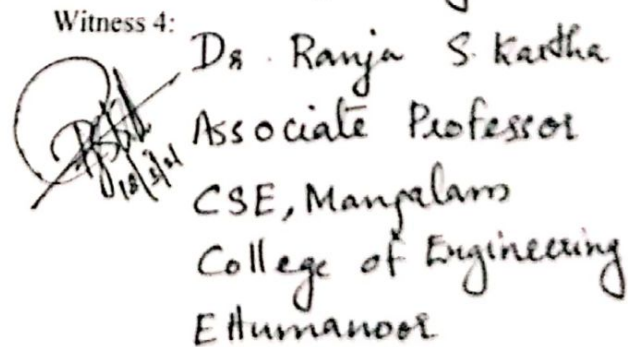 Witness 4:
Dr. Ranja S. Kartha
Associate Professor
18/3/21
CSE, Mangalam
College of Engineering
Ettumanoor